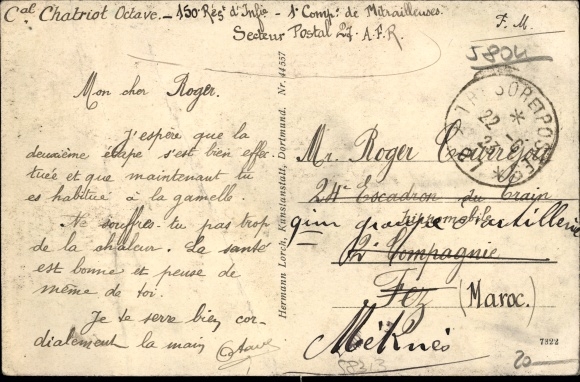 Cal Chatriot Octave. _ 150 Régt d'Infie _ 1e Compie de Mitrailleuses.
Secteur Postal 27. A.F.R.
F. M.
5804
TRESOR ET POSTES
22 - 6
25
Mon cher Roger.
J'espère que la
deuxième étape s'est bien effec
tuée et que maintenant tu
es habitué à la gamelle.
Ne souffres-tu pas trop
de la chaleur. La santé
est bonne et pense de
même de toi.
Je te serre bien cor-
dialement la main
Octave
Hermann Lorch, Kunstanstalt, Dortmund. Nr. 44557
Mr. Roger
24e Escadron du Train
groupe d'artillerie
2e Compagnie
Fez (Maroc.)
Méknès
7822
20